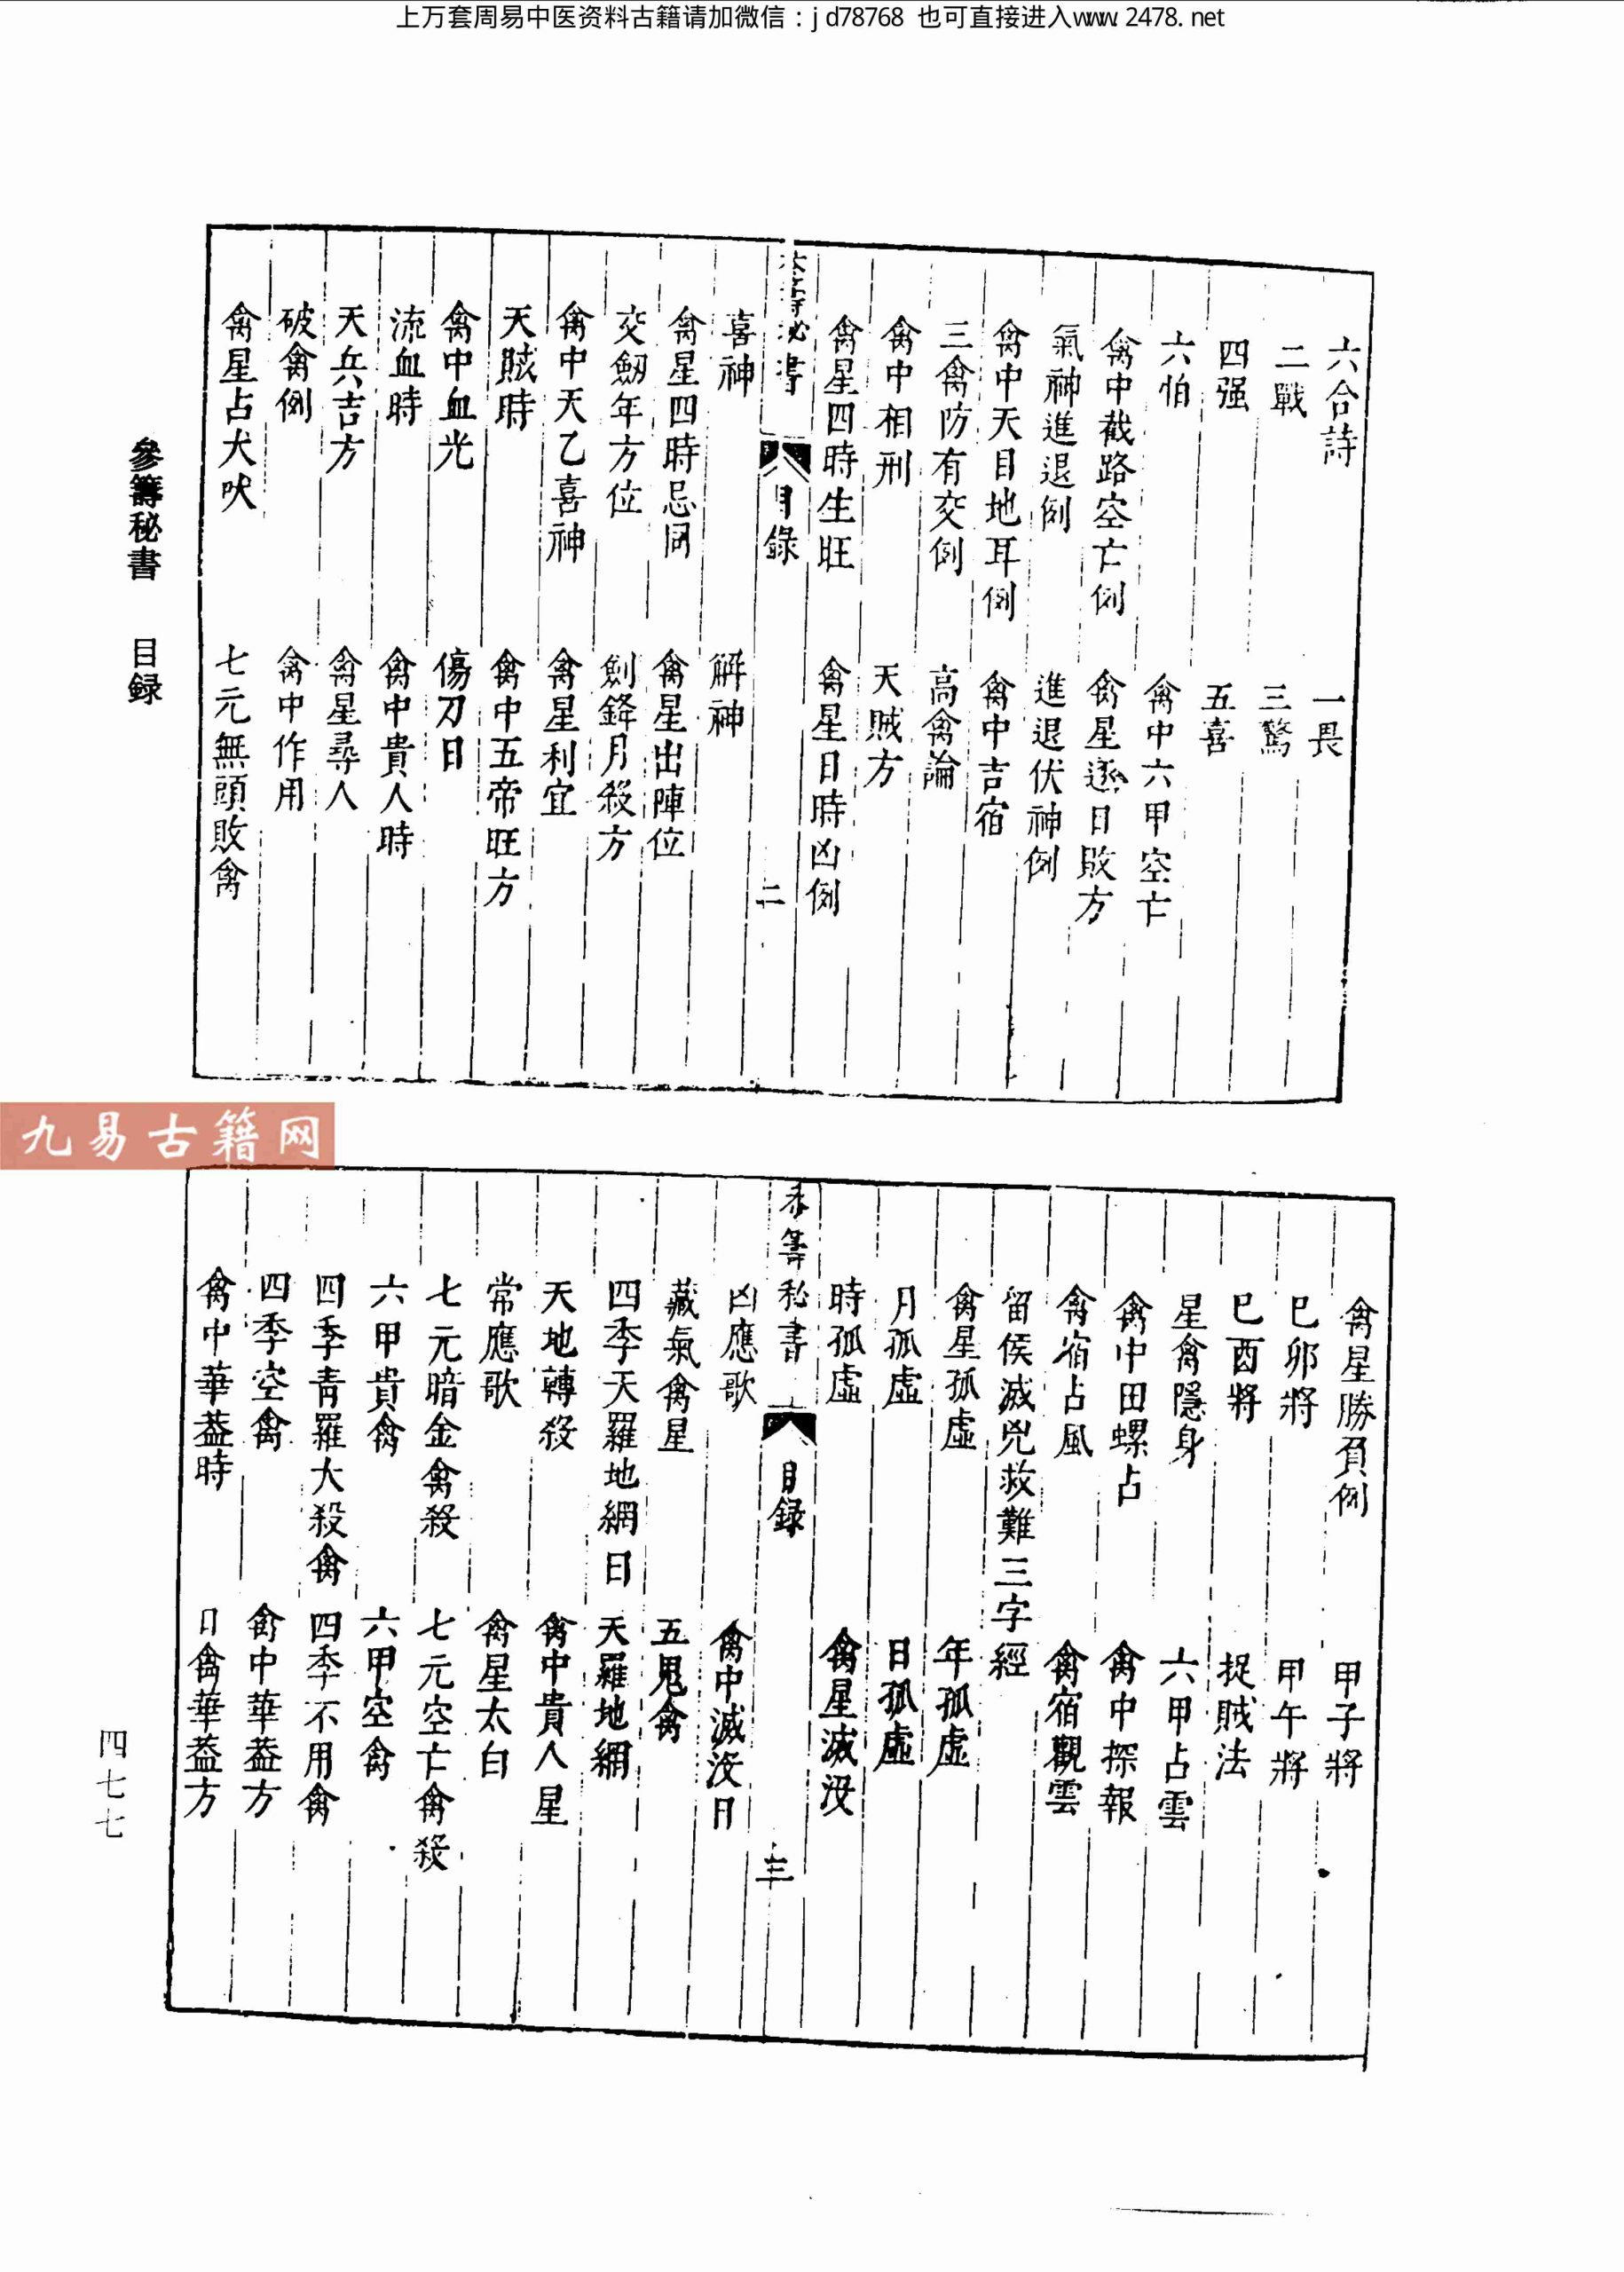 上万套周易中医资料古籍请加微信：jd78768 也可直接进入www.2478.net
六合詩 一畏
二戰 三驚
四强 五喜
六怕 禽中六甲空亡
禽中截路空亡例 禽星逐日敗方
氣神進退例 進退伏神例
禽中天目地耳例 禽中吉宿
三禽防有交例 高禽論
禽中相刑 天賊方
禽星四時生旺 禽星日時凶例
參籌秘書 目錄 二
喜神 解神
禽星四時忌同 禽星出陣位
交劔年方位 劍鋒月殺方
禽中天乙喜神 禽星利宜
天賊時 禽中五帝旺方
禽中血光 傷刀日
流血時 禽中貴人時
天兵吉方 禽星尋人
破禽例 禽中作用
禽星占犬吠 七元無頭敗禽
參籌秘書 目録
九易古籍网
禽星勝負例 甲子將
巳卯將 甲午將
巳酉將 捉賊法
星禽隱身 六甲占雲
禽中田螺占 禽中探報
禽宿占風 禽宿觀雲
留侯滅兇救難三字經
禽星孤虛 年孤虛
月孤虛 日孤虛
時孤虛 禽星滅没
參籌秘書 目録 三
凶應歌 禽中滅没日
藏氣禽星 五鬼禽
四季天羅地網日 天羅地網
天地轉殺 禽中貴人星
常應歌 禽星太白
七元暗金禽殺 七元空亡禽殺
六甲貴禽 六甲空禽
四季青羅大殺禽 四季不用禽
四季空禽 禽中華葢方
禽中華葢時 日禽華葢方
四七七